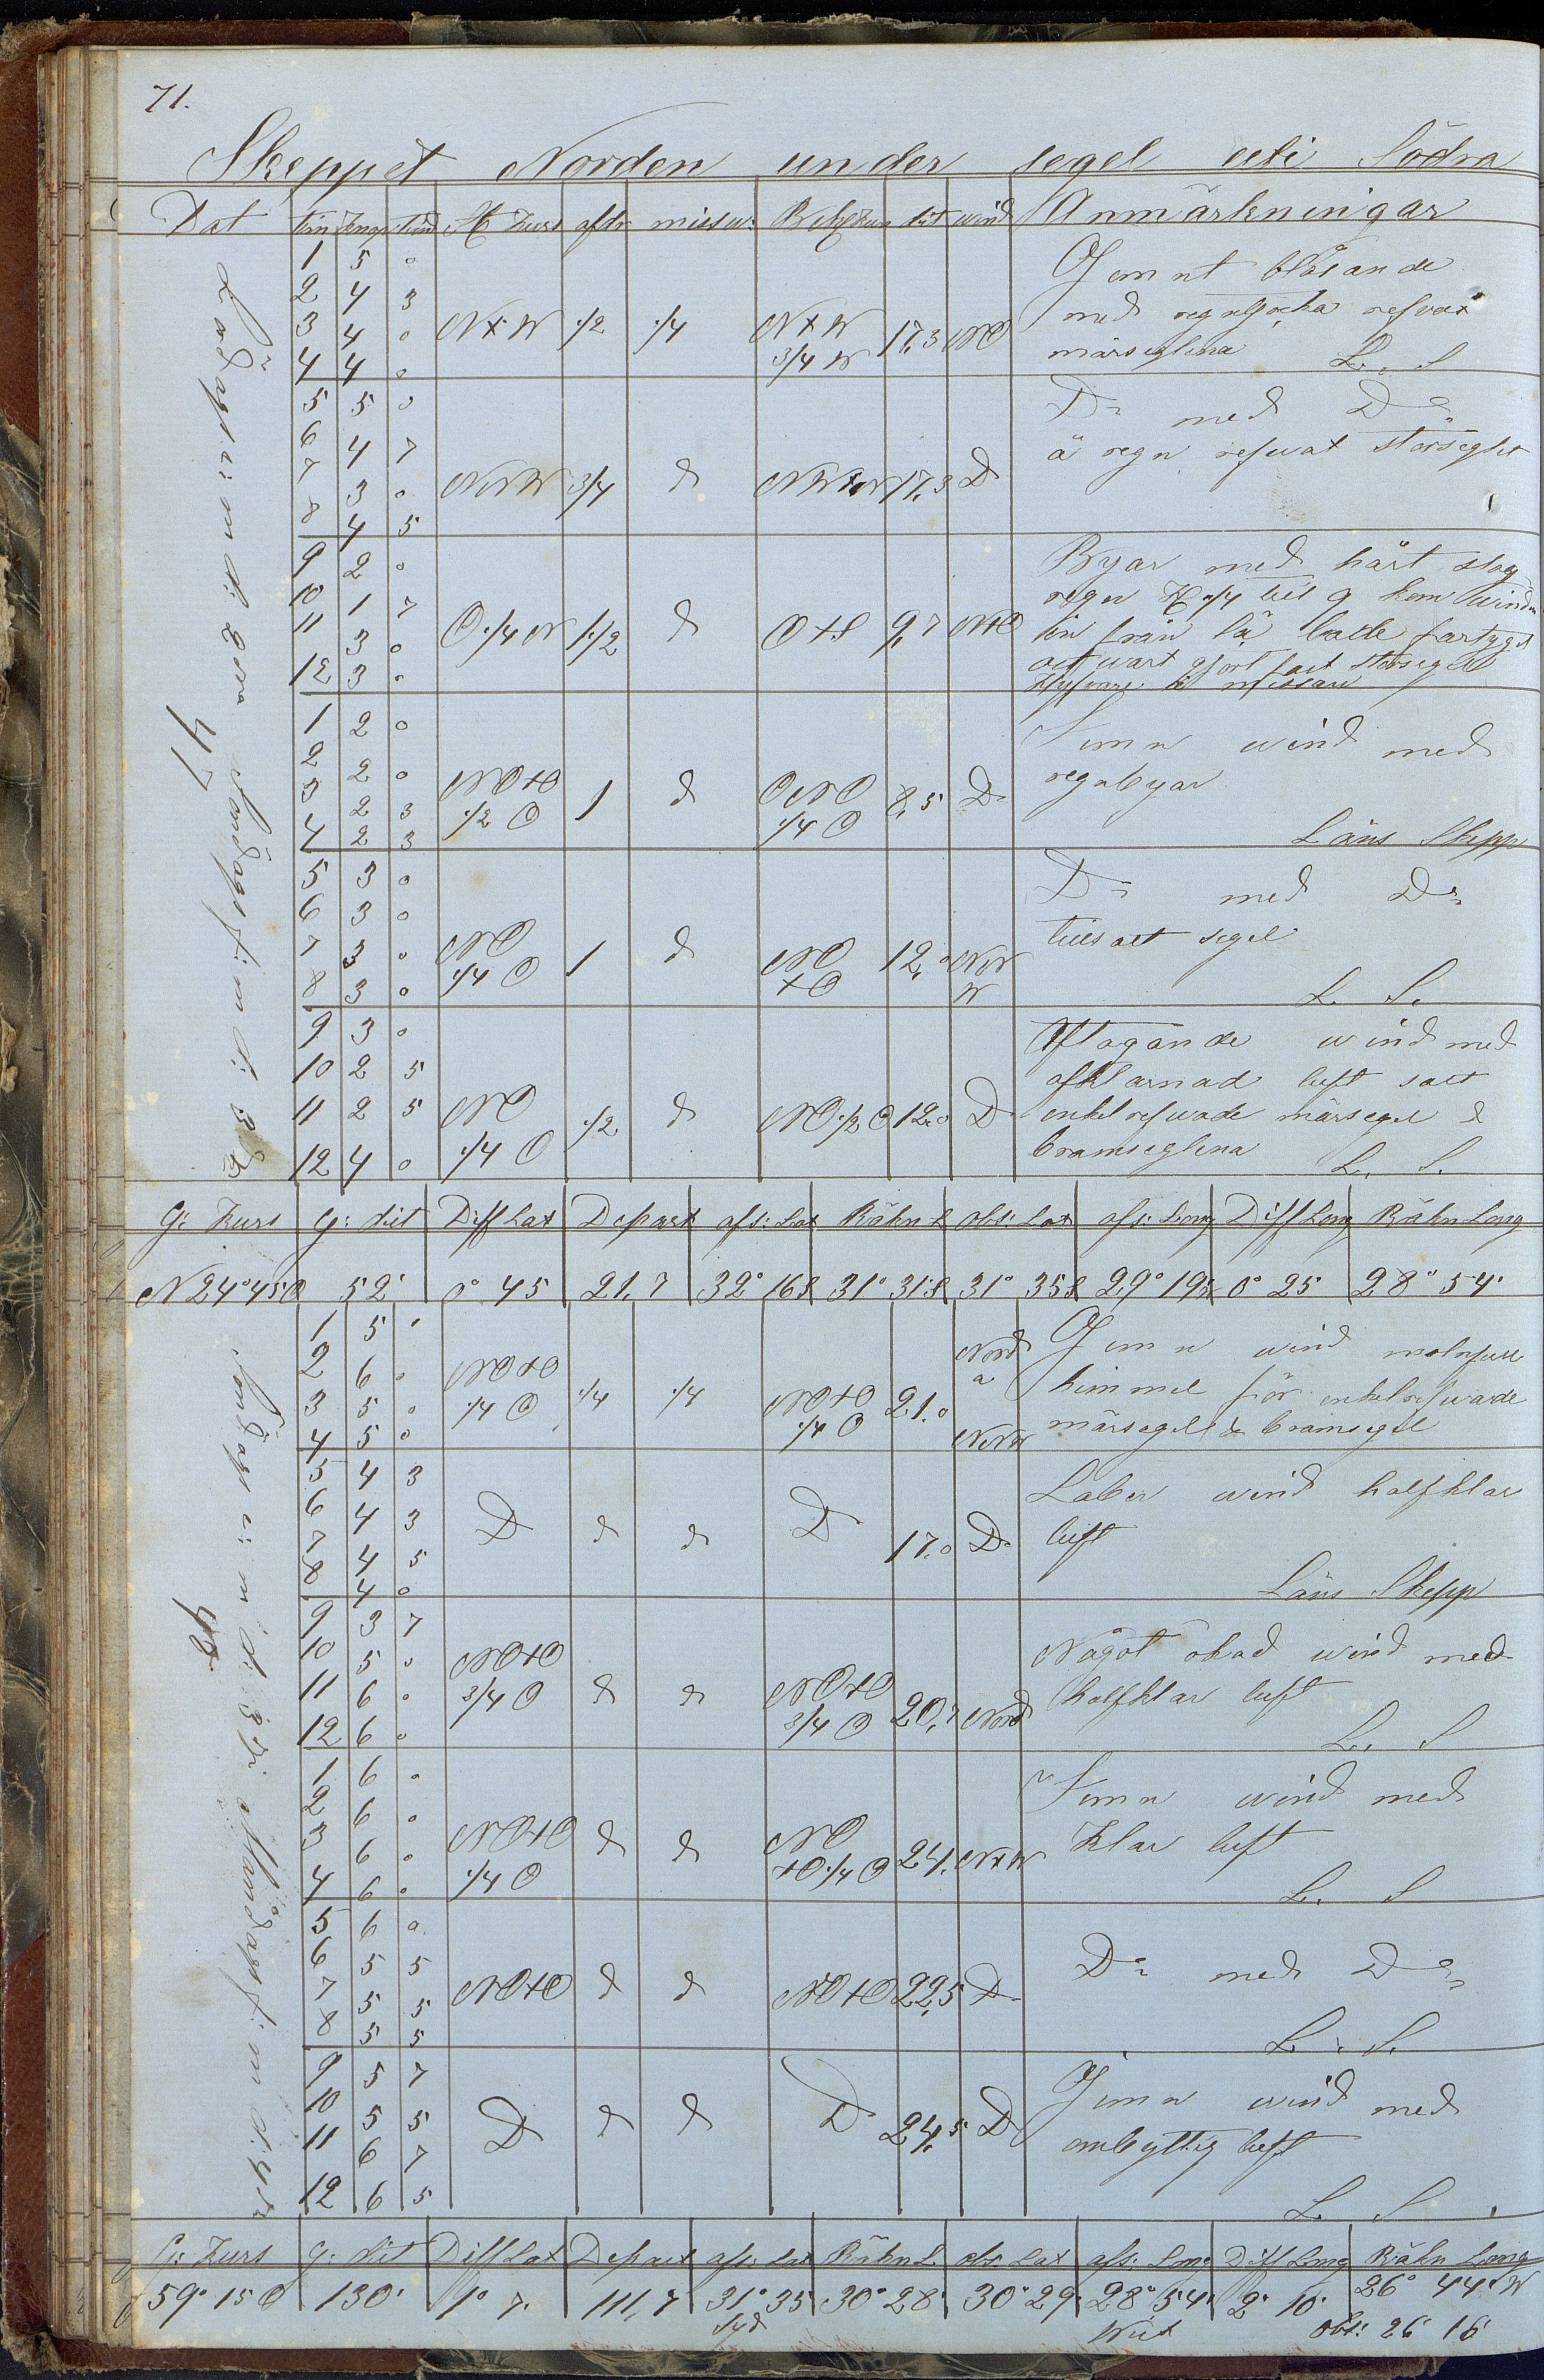 71.
Skeppet Norden under segel uti Södra
Dat tim knop tind St Kurs afdr missw: Beh Kurs dist wind Anmärkningar
Lördagen e: m d: 2dra
47 Söndags f: m d: 3de
1 5 0
2 4 3
3 4 0 N×W 1/2 1/4 N×W 3/4 W 17,3 NO
4 4 0
Jemnt blåsande
med regntjocka refvat
märseglena L. S
5 5 0
6 4 7
7 3 0 NNW 3/4 d NW×N 17,3 D
8 4 5
Do med Do
å regn refwat storseglet
9 2 0
10 1 7
11 3 0 O 1/4 N 1 1/2 d O×S 9,7 N×O
12 3 0
Byar med hårt slag
regn K 1/4 till 9 kom winden
in från lä
wart gjort fast storsegel
Klyfvare å missan
1 2 0
2 2 0
3 2 3 NO×O 1/2 O 1 d ONO 1/4 O 8,5 D
4 2 3
Jemn wind med
regnbyar
Läns Skepp
5 3 0
6 3 0
7 3 0 NO 1/4 O 1 d NO ×O 12,0 NNW
8 3 0
Do med Do
tillsatt segel
L. S.
9 3 0
10 2 5
11 2 5 NO 1/4 O 1/2 d NO 1/2 O 12,0 D
12 4 0
Aftagande wind med
afklarnad luft satt
enkelrefwade märsegel &
bramseglena L. S.
G: Kurs g: dist Diff Lat Depart afs: Lat Räkn L obs: Lat afs: Long Diff Long Räkn Long
N 24° 45 O 52' 0° 45 21,7 32° 16 S 31° 31' S 31° 35 S 29° 19 0° 25 28° 54'
Söndags e: m d: 3de Måndags f: m d: 4de
48
1 5 0
2 6 0
3 5 0 NO×O 1/4 O 1/4 1/4 NO×O 1/4 O 21,0 Nord a NNW
4 5 0
Jemn wind molnfull
himmel för enkelrefwade
märsegel & bramsegel
5 4 3
6 4 3
7 4 5 D d d D 17,0 D
8 4 0
Laber wind halfklar
luft
Läns Skepp
9 3 7
10 5 0
11 6 0 NO×O 3/4 O d d NO×O 3/4 O 20,7 Nord
12 6 0
Något ökad wind med
halfklar luft
L. S
1 6 0
2 6 0
3 6 0 NO×O 1/4 O d d NO ×O 1/4 O 24, N×W
4 6 0
Jemn wind med
Klar luft
L. S
5 6 0
6 5 5
7 5 5 NO×O d d NO×O 22,5 D
8 5 5
Do med Do
L. S.
9 5 7
10 5 5
11 6 7 D d d D 24,5 D
12 6 5
Jemn wind med
ombyttig luft
L. S.
G: Kurs g: dist Diff Lat Depart afs: Lat Räkn L obs: Lat afs: Long Diff Long Räkn Long
59° 15 O 130' 1° 7' 111,7 31° 35 30° 28' 30° 29 28° 54' 2° 10' 26° 44' W
Syd Wist Obs: 26 16